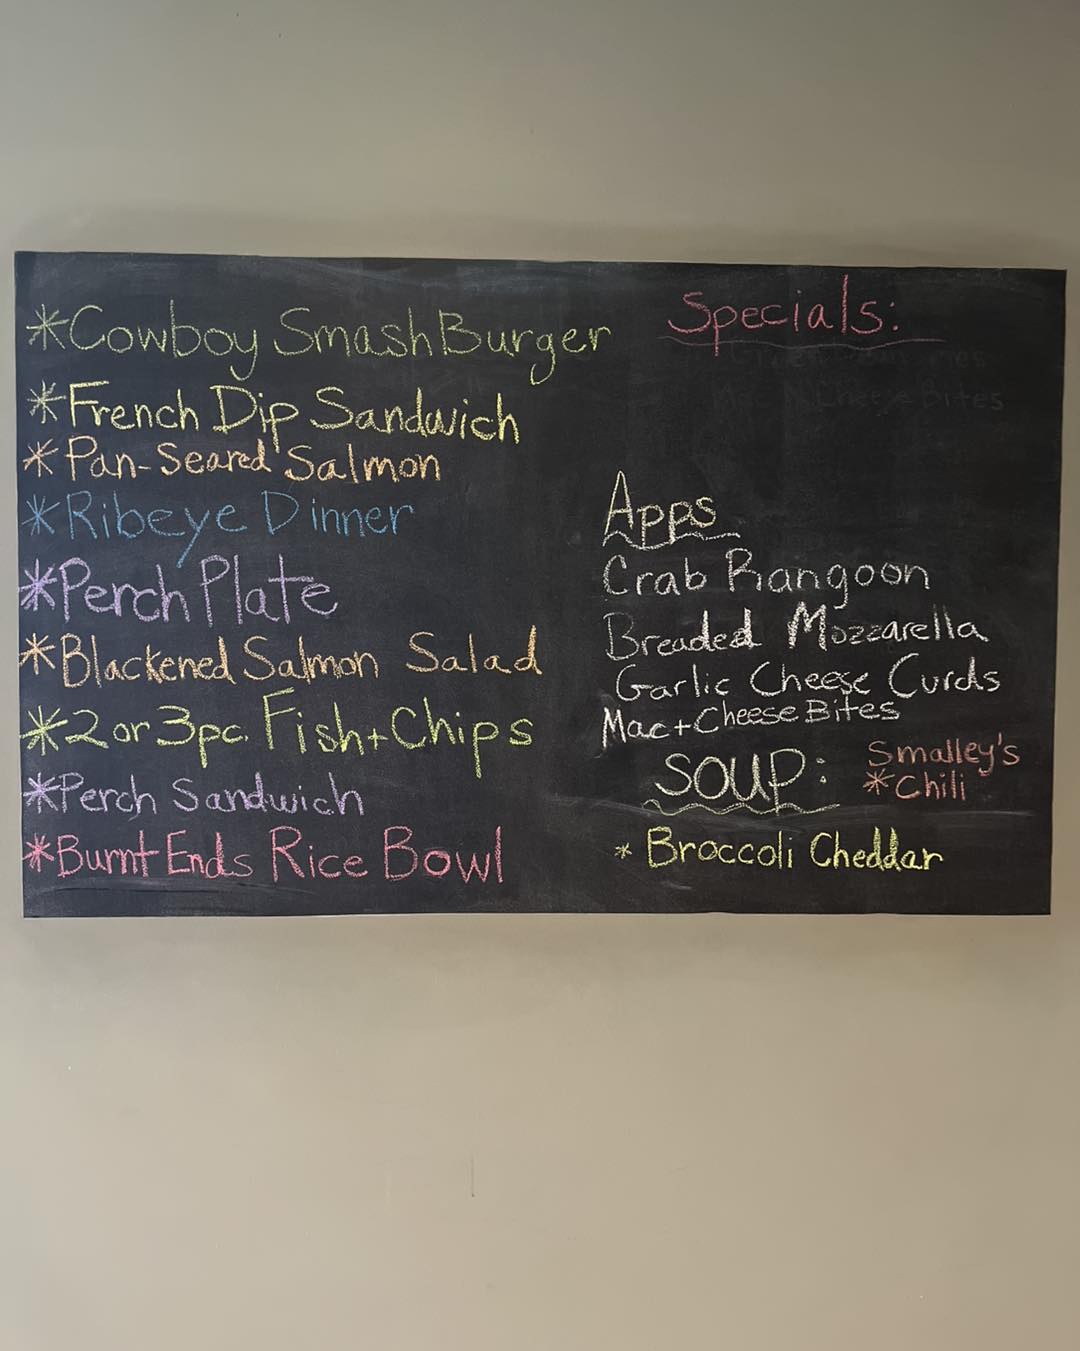 *Cowboy Smash Burger
*French Dip Sandwich
*Pan-Seared Salmon
*Ribeye Dinner
*Perch Plate
*Blackened Salmon Salad
*2 or 3pc. Fish+Chips
*Perch Sandwich
*Burnt Ends Rice Bowl
Specials:
Cheese Bites
Apps
Crab Rangoon
Breaded Mozzarella
Garlic Cheese Curds
Mac+Cheese Bites
SOUP:
Smalley's
*Chili
* Broccoli Cheddar